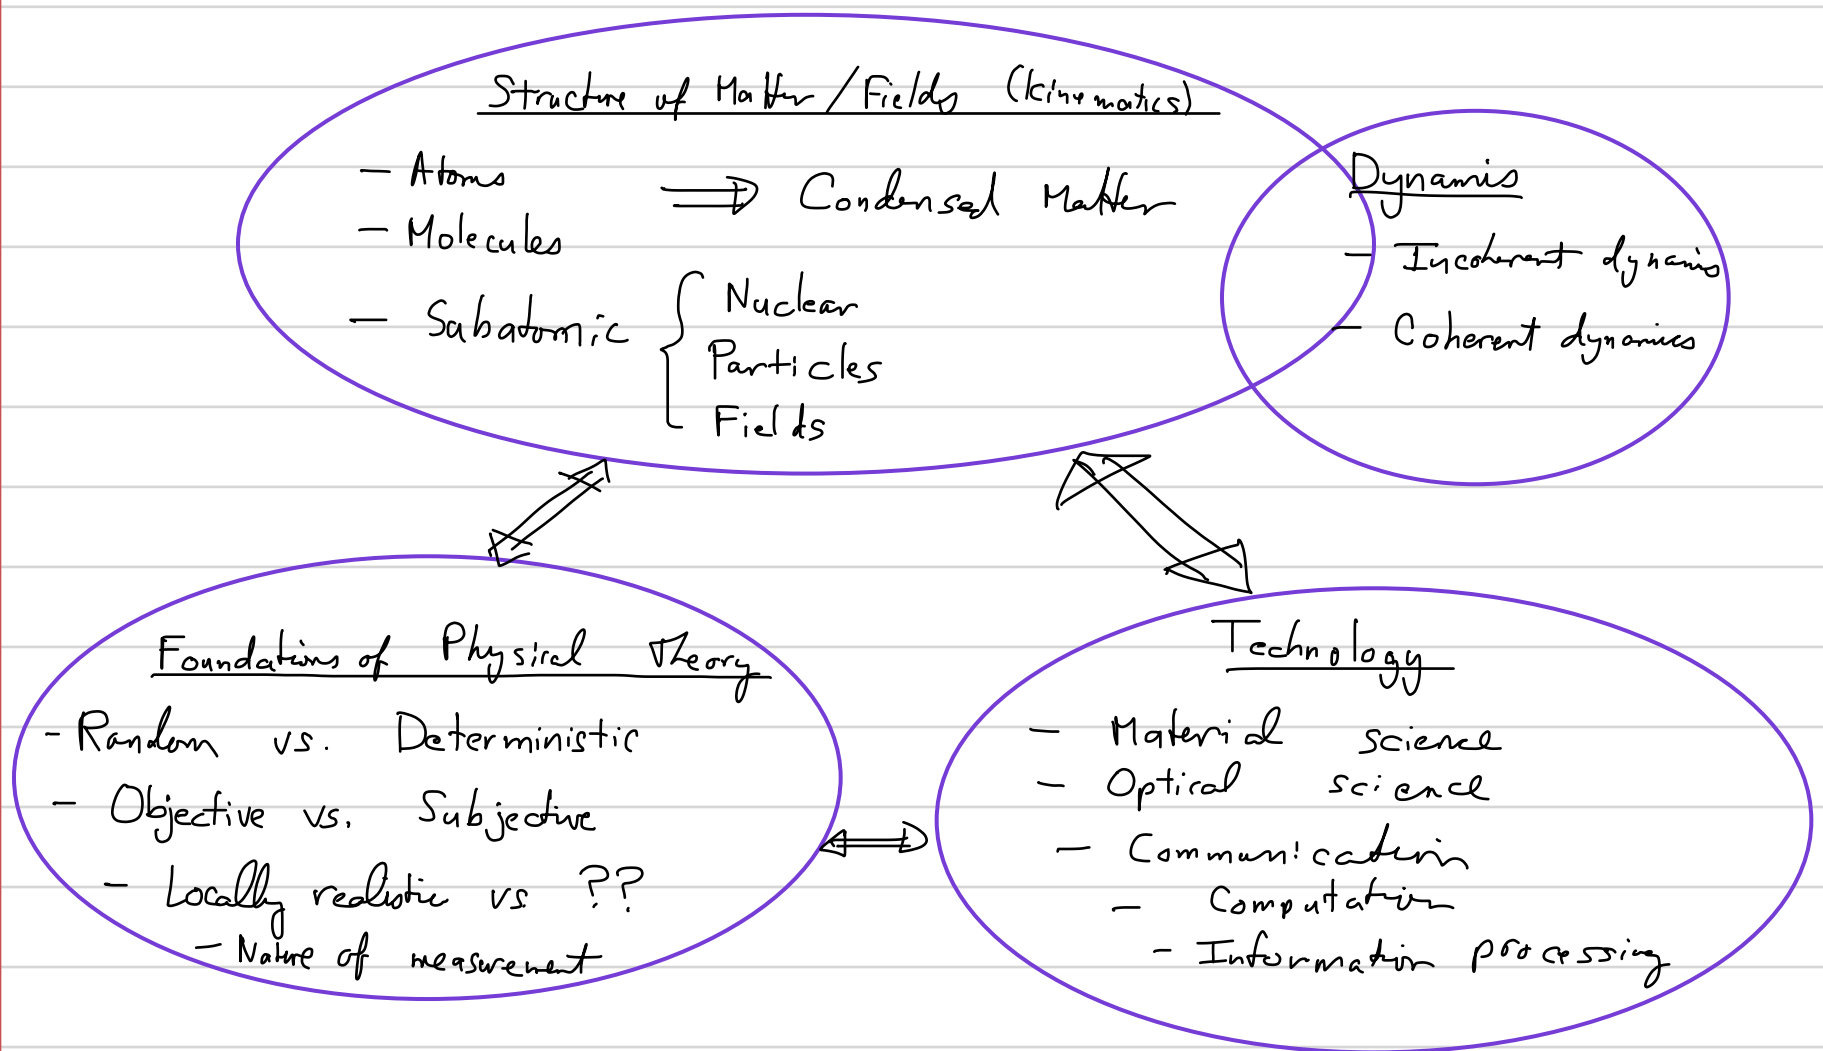 Structure of Matter/Fields (kinematics)
- Atoms
⇒ Condensed Matter
- Molecules
- Subatomic { Nuclear
Particles
Fields
Dynamis
- Incoherent dynamis
- Coherent dynamics
Foundations of Physical Theory
- Random vs. Deterministic
- Objective vs. Subjective
- Locally realistic vs ??
- Nature of measurement
Technology
- Material science
- Optical science
- Communication
- Computation
- Information processing